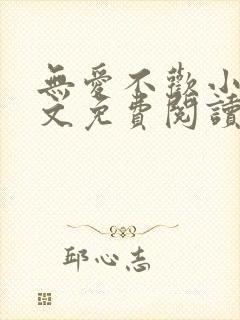 無愛不歡小
文免費閱讀
邱心志